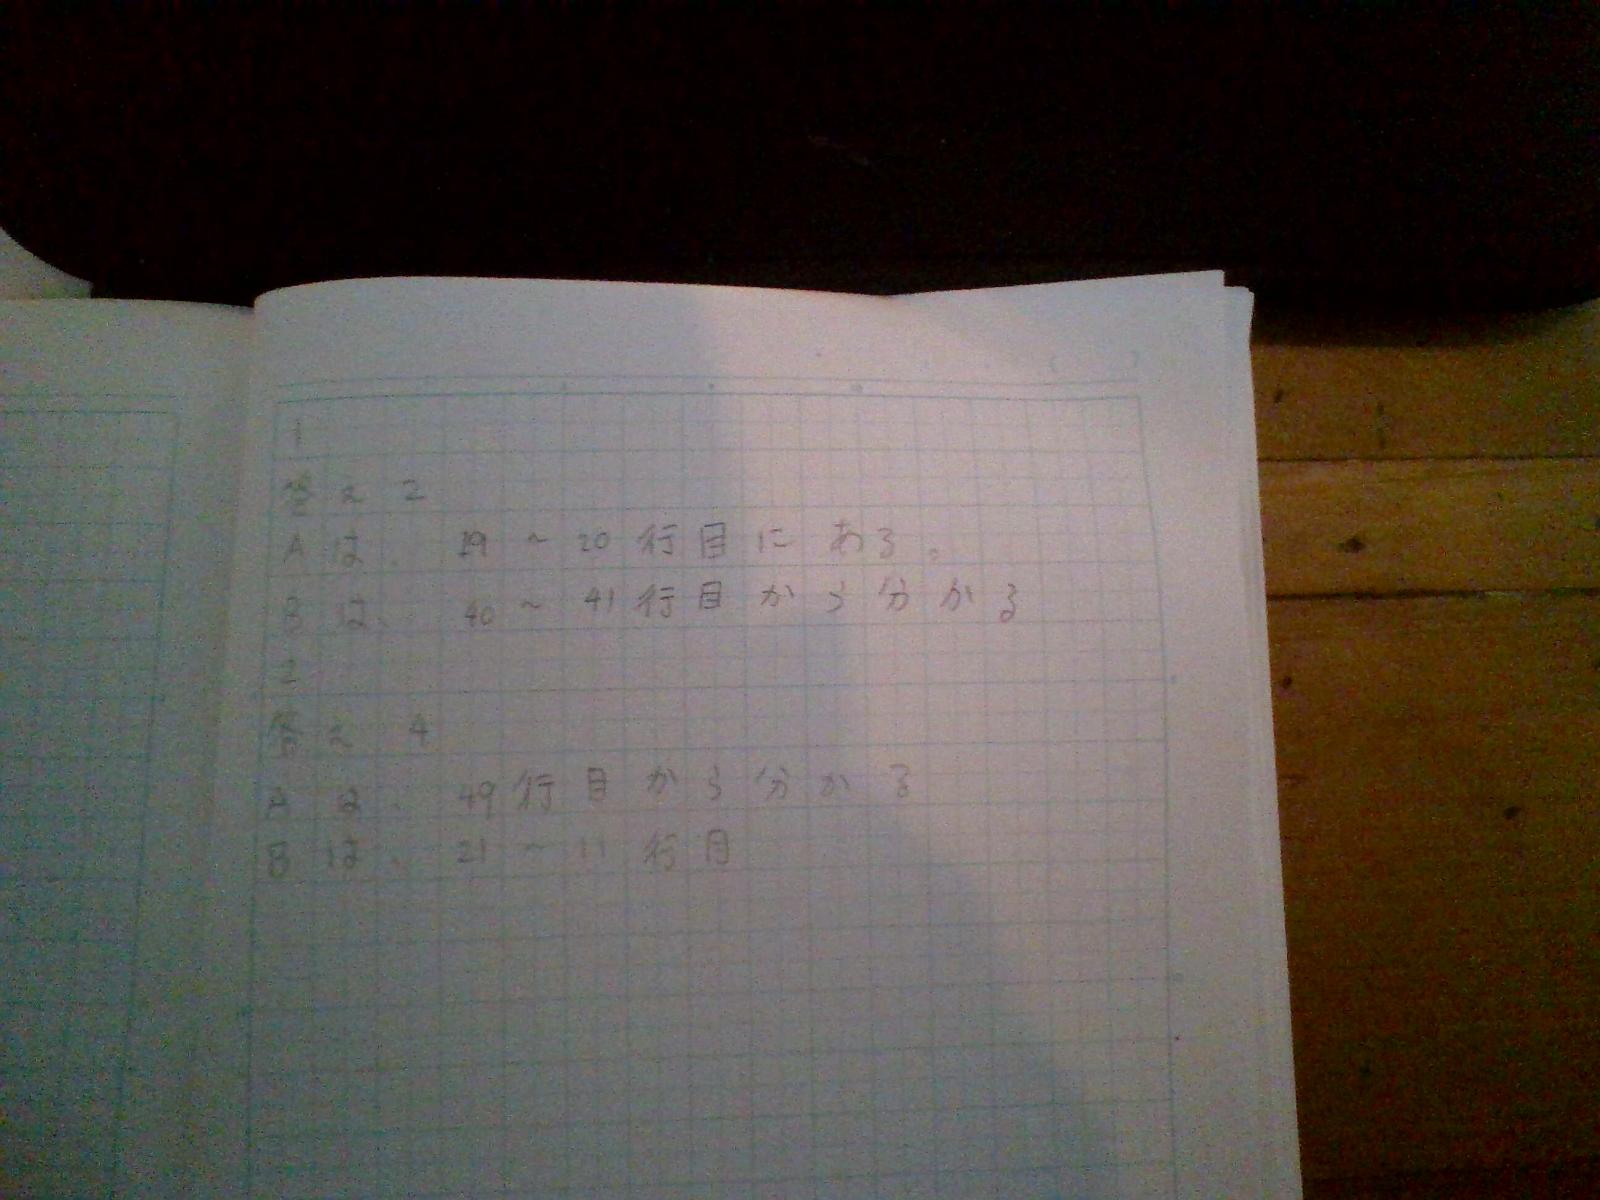 1
答え 2
Aは、19～20行目にある。
Bは、40～41行目から分かる
2
答え 4
Aは、49行目から分かる
Bは、21～11行目